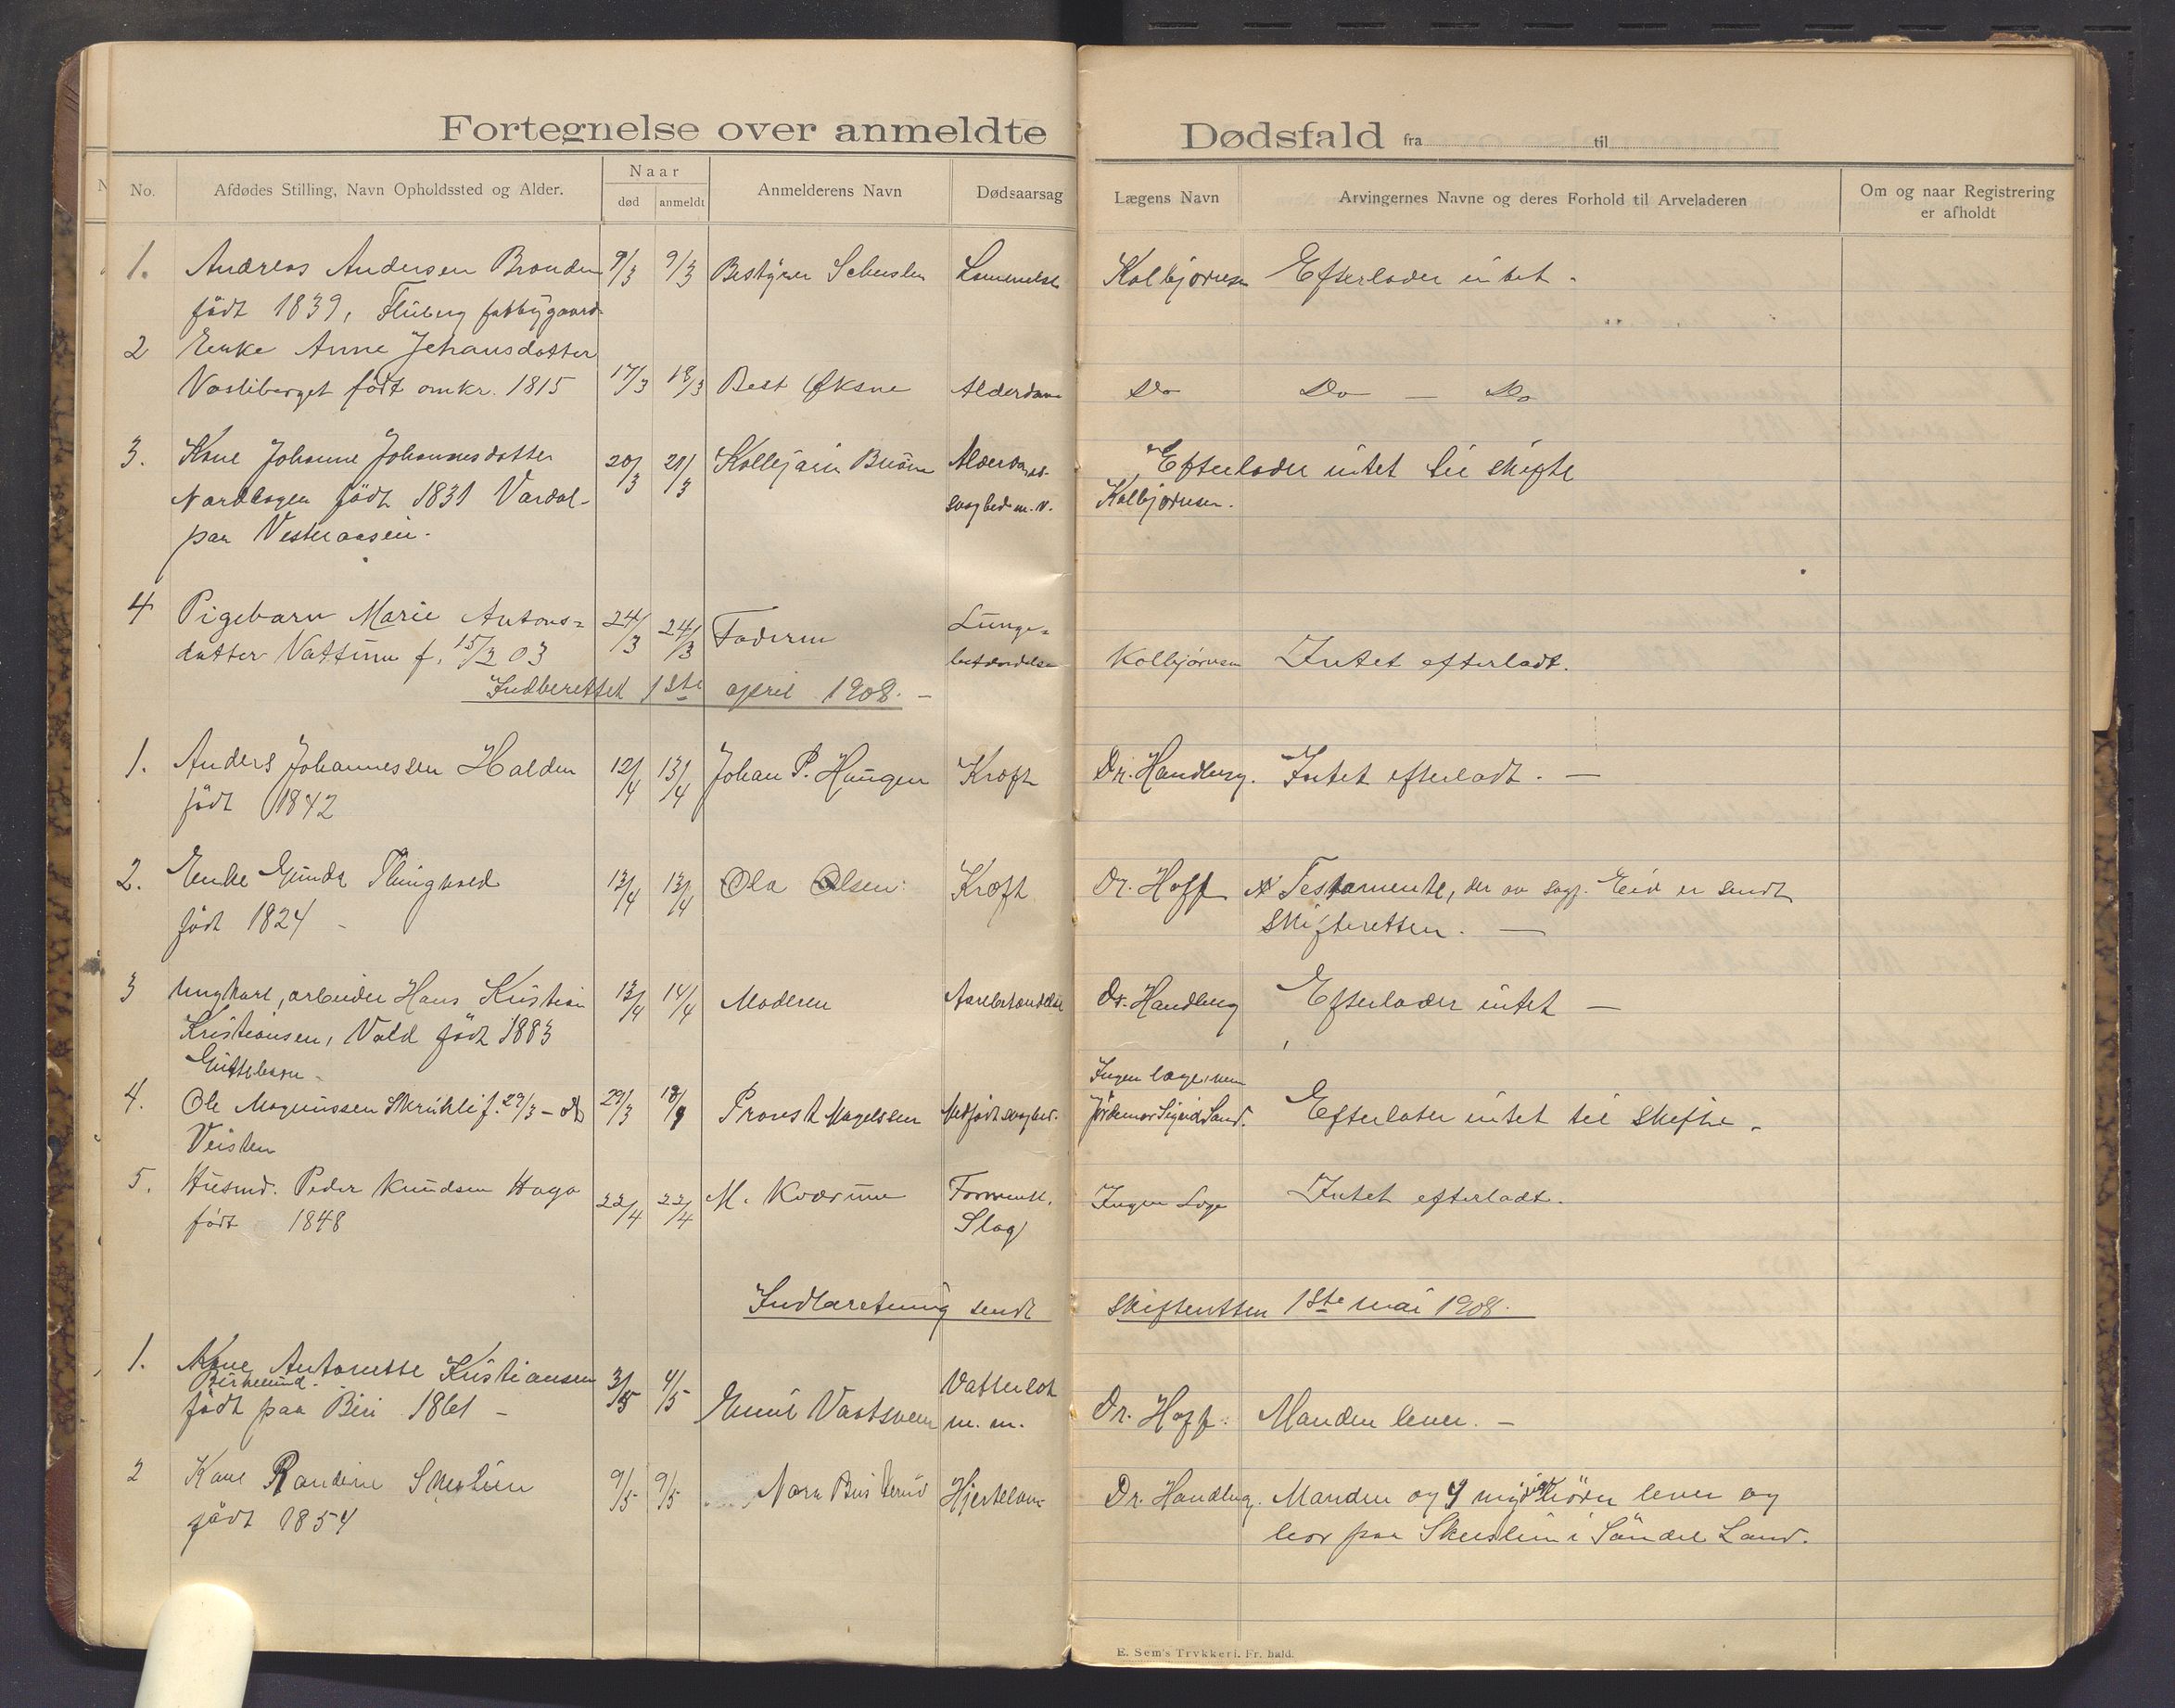 Fortegnelse over anmeldte Dødsfald fra til
No. Afdødes Stilling, Navn Opholdssted og Alder. Naar død anmeldt Anmelderens Navn Dødsaarsag Lægens Navn Arvingernes Navne og deres Forhold til Arveladeren Om og naar Registrering er afholdt
1. Andreas Andersen Branden 9/3 9/3 Bestyrer Lammelse Kolbjørnsen Efterlader intet.
født 1839, Fluberg fattiggaard
2 Enke Anne Johansdatter
Vastiberget født omkr. 1815 17/3 18/3 Best Øksne Alderdom Do Do — Do
3. Kone Johanne Johannesdatter 20/3 21/3 Alderdoms- Efterlader intet til skifte
født 1831 Vardal svaghed m. v. Kolbjørnsen.
paa Vesteraasen.
4 Pigebarn Marie Antons= 24/3 24/3 Faderen Lunge=
datter f. 15/2 03 betændelse Kolbjørnsen Intet efterladt.
Indberettet 1ste april 1908. —
1. Anders Johannessen Halden 12/4 13/4 Johan P. Haugen Kræft Dr. Handberg. Intet efterladt. —
født 1842
2. Enke Gunda Thingvold 13/4 13/4 Ola Olsen Kræft Dr. Hoff Testamente, der av sagf. Eid er sendt
født 1824 — skifteretten. —
3 Ungkarl, arbeider Hans Kristian 13/4 14/4 Moderen Dr. Handberg Efterlader intet —
Kristiansen, Vold født 1883
Guttebarn Ingen læge, men
4. Ole Magnussen Skrukli f. 29/3 – 08 29/3 Provst Magelssen Medfødt svaghed. Jordemor Sigrid Sand. Efterlater intet til skifte.
Veisten
5. Husmd. Peder Knudsen Haga 22/4 22/4 M. Kværum Forment. Ingen Læge Intet efterladt.
født 1848 Slag
Indberetning sendt skifteretten 1ste mai 1908.
1. Kone Antonette Kristiansen 3/5 4/5 Vattersot
Birkelund.
født paa Biri 1861 — Emil m. m. Dr. Hoff. Manden lever. —
2 Kone Randine 9/5 9/5 Nora Dr. Handberg. Manden og 4 myndige børn lever og
født 1854 bor paa i Søndre Land.
E. Sem's Trykkeri. Fr. hald.